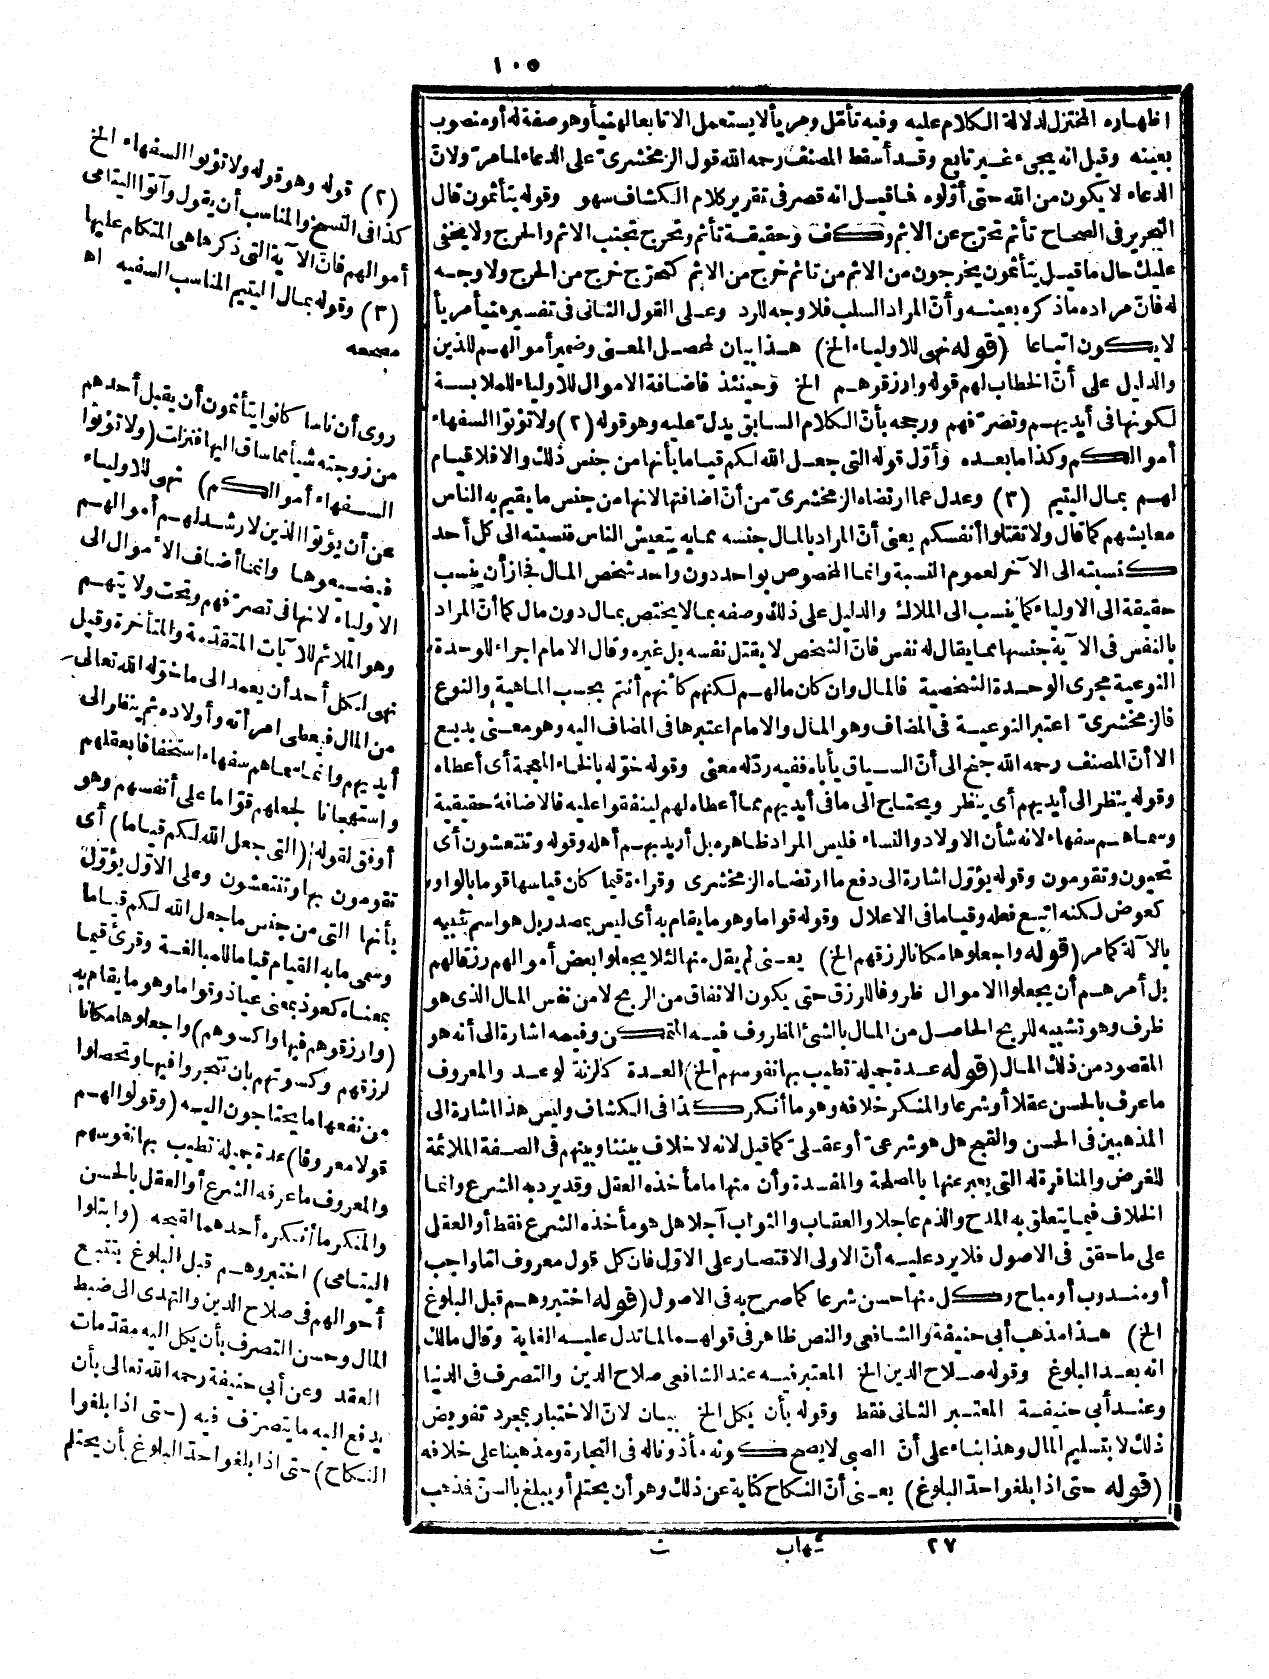 ١٠٥
اظهاره المختزل لدلالة الكلام عليه وفيه تأمل ومريأ لا يستعمل الا تابعا لهنيأ وهو صفة له أو منصوب
بعينه وقيل انه يجيء غير تابع وقد أسقط المصنف رحمه الله قول الزمخشرى على الدعاء لما مر ولانّ
الدعاء لا يكون من الله حتى أقلوه فما قيل انه قصر فى تقرير كلام الكشاف سهو وقوله يتأثمون قال
النحرير فى الصحاح تأثم تحرّج عن الاثم وكف وحقيقة تأثم وتحرج تجنب الاثم والحرج ولا يخفى
عليك حال ما قيل يتأثمون يخرجون من الاثم من تأثم خرج من الاثم كتحرّج خرج من الحرج ولا وجه
له فانّ مراده ما ذكره بعينه وأنّ المراد السلب فلا وجه للرد وعلى القول الثانى فى تفسيره هنيأ مريأ
لا يكون اتباعا (قوله نهى للاولياء الخ) هذا بيان لمحصل المعنى وضمير أموالهم للذين
والدليل على أنّ الخطاب لهم قوله وارزقوهم الخ وحينئذ فاضافة الاموال للاولياء للملابسة
لكونها فى أيديهم وتصرّفهم ورجحه بأنّ الكلام السابق يدلّ عليه وهو قوله (٢) ولا تؤتوا السفهاء
أموالكم وكذا ما بعده وأوّل قوله التى جعل الله لكم قياما بأنها من جنس ذلك والا فلا قيام
لهم بمال اليتيم (٣) وعدل عما ارتضاه الزمخشرى من أنّ اضافتها لانها من جنس ما يقيم به الناس
معايشهم كما قال ولا تقتلوا أنفسكم يعنى أنّ المراد بالمال جنسه مما به يتعيش الناس فنسبته الى كل أحد
كنسبته الى الآخر لعموم النسبة وانما المخصوص بواحد دون واحد شخص المال فجاز أن ينسب
حقيقة الى الاولياء كما ينسب الى الملاك والدليل على ذلك وصفه بما لا يختص بمال دون مال كما أنّ المراد
بالنفس فى الآية جنسها مما يقال له نفس فانّ الشخص لا يقتل نفسه بل غيره وقال الامام اجراء للوحدة
النوعية مجرى الوحدة الشخصية فالمال وان كان مالهم لكنهم كأنهم أنتم بحسب الماهية والنوع
فالزمخشرى اعتبر النوعية فى المضاف وهو المال والامام اعتبرها فى المضاف اليه وهو معنى بديع
الا أنّ المصنف رحمه الله جنح الى أنّ السباق يأباه ففيه ردّ له معنى وقوله خوّله بالخاء المعجمة أى أعطاه
وقوله ينظر الى أيديهم أى ينظر ويحتاج الى ما فى أيديهم مما أعطاه لهم لينفقوا عليه فالاضافة حقيقية
وسماهم سفهاء لانه شأن الاولاد والنساء فليس المراد ظاهره بل أريد بهم أهله وقوله وتنتعشون أى
تحيون وتقومون وقوله يؤوّل اشارة الى دفع ما ارتضاه الزمخشرى وقراءة قيما كان قياسها قوما بالواو
كعوض لكنه اتبع فعله وقياما فى الاعلال وقوله قواما وهو ما يقام به أى ليس بمصدر بل هو اسم شبيه
بالآلة كما مر (قوله واجعلوها مكانا لرزقهم الخ) يعنى لم يقل منها لئلا يجعلوا بعض أموالهم رزقا لهم
بل أمرهم أن يجعلوا الاموال ظروفا للرزق حتى يكون الانفاق من الربح لا من نفس المال الذى هو
ظرف وهو تشبيه للربح الحاصل من المال بالشئ المظروف فيه المتمكن وفيه اشارة الى أنه هو
المقصود من ذلك المال (قوله عدة جميلة تطيب بها نفوسهم الخ) العدة كالزنة لوعد والمعروف
ما عرف بالحسن عقلا أو شرعا والمنكر خلافه وهو ما أنكر كذا فى الكشاف وليس هذا اشارة الى
المذهبين فى الحسن والقبح هل هو شرعىّ أو عقلىّ كما قيل لانه لا خلاف بيننا وبينهم فى الصفة الملائمة
للغرض والمنافرة له التى يعبر عنها بالمصلحة والمفسدة وأن منها ما مأخذه العقل وقد يرد به الشرع وانما
الخلاف فيما يتعلق به المدح والذم عاجلا والعقاب والثواب آجلا هل هو مأخذه الشرع فقط أو العقل
على ما حقق فى الاصول فلا يرد عليه أنّ الاولى الاقتصار على الاوّل فان كل قول معروف امّا واجب
أو مندوب أو مباح وكل منها حسن شرعا كما صرح به فى الاصول (قوله اختبروهم قبل البلوغ
الخ) هذا مذهب أبى حنيفة والشافعى والنص ظاهر فى قولهما لما تدل عليه الغاية وقال مالك
انه بعد البلوغ وقوله صلاح الدين الخ المعتبر فيه عند الشافعى صلاح الدين والتصرف فى الدنيا
وعند أبى حنيفة المعتبر الثانى فقط وقوله بأن يكل الخ بيان لانّ الاختبار بمجرد تفويض
ذلك لا بتسليم المال وهذا بناء على أنّ الصبى لا يصح كونه مأذونا له فى التجارة ومذهبنا على خلافه
(قوله حتى اذا بلغوا حدّ البلوغ) يعنى أنّ النكاح كناية عن ذلك وهو أن يحتلم أو يبلغ بالسنّ فذهب
(٢) قوله وهو قوله ولا تؤتوا السفهاء الخ
كذا فى النسخ والمناسب أن يقول وآتوا اليتامى
أموالهم فانّ الآية التى ذكرها هى المتكلم عليها
(٣) وقوله بمال اليتيم المناسب السفيه اه
مصححه
روى أن ناسا كانوا يتأثمون أن يقبل أحدهم
من زوجته شيأ مما ساق اليها فنزلت (ولا تؤتوا
السفهاء أموالكم) نهى للاولياء
عن أن يؤتوا الذين لا رشد لهم أموالهم
فيضيعوها وانما أضاف الأموال الى
الاولياء لانها فى تصرّفهم وتحت ولايتهم
وهو الملائم للآيات المتقدّمة والمتأخرة وقيل
نهى لكل أحد أن يعمد الى ما خوّله الله تعالى
من المال فيعطى امرأته وأولاده ثم ينظر الى
أيديهم وانما سماهم سفهاء استخفافا بعقلهم
واستهجانا لجعلهم قوّاما على أنفسهم وهو
أوفق لقوله (التى جعل الله لكم قياما) أى
تقومون بها وتنتعشون وعلى الاوّل يؤوّل
بأنها التى من جنس ما جعل الله لكم قياما
وسمى ما به القيام قياما للمبالغة وقرئ قيما
بمعناه كعوذ بمعنى عياذ وقواما وهو ما يقام به
(وارزقوهم فيها واكسوهم) واجعلوها مكانا
لرزقهم وكسوتهم بأن تتجروا فيها وتحصلوا
من نفعها ما يحتاجون اليه (وقولوا لهم
قولا معروفا) عدة جميلة تطيب بها نفوسهم
والمعروف ما عرفه الشرع أو العقل بالحسن
والمنكر ما أنكره أحدهما لقبحه (وابتلوا
اليتامى) اختبروهم قبل البلوغ بتتبع
أحوالهم فى صلاح الدين والتهدى الى ضبط
المال وحسن التصرف بأن يكل اليه مقدّمات
العقد وعن أبى حنيفة رحمه الله تعالى بأن
يدفع اليه ما يتصرّف فيه (حتى اذا بلغوا
النكاح) حتى اذا بلغوا حدّ البلوغ بأن يحتلم
٢٧ شهاب ث